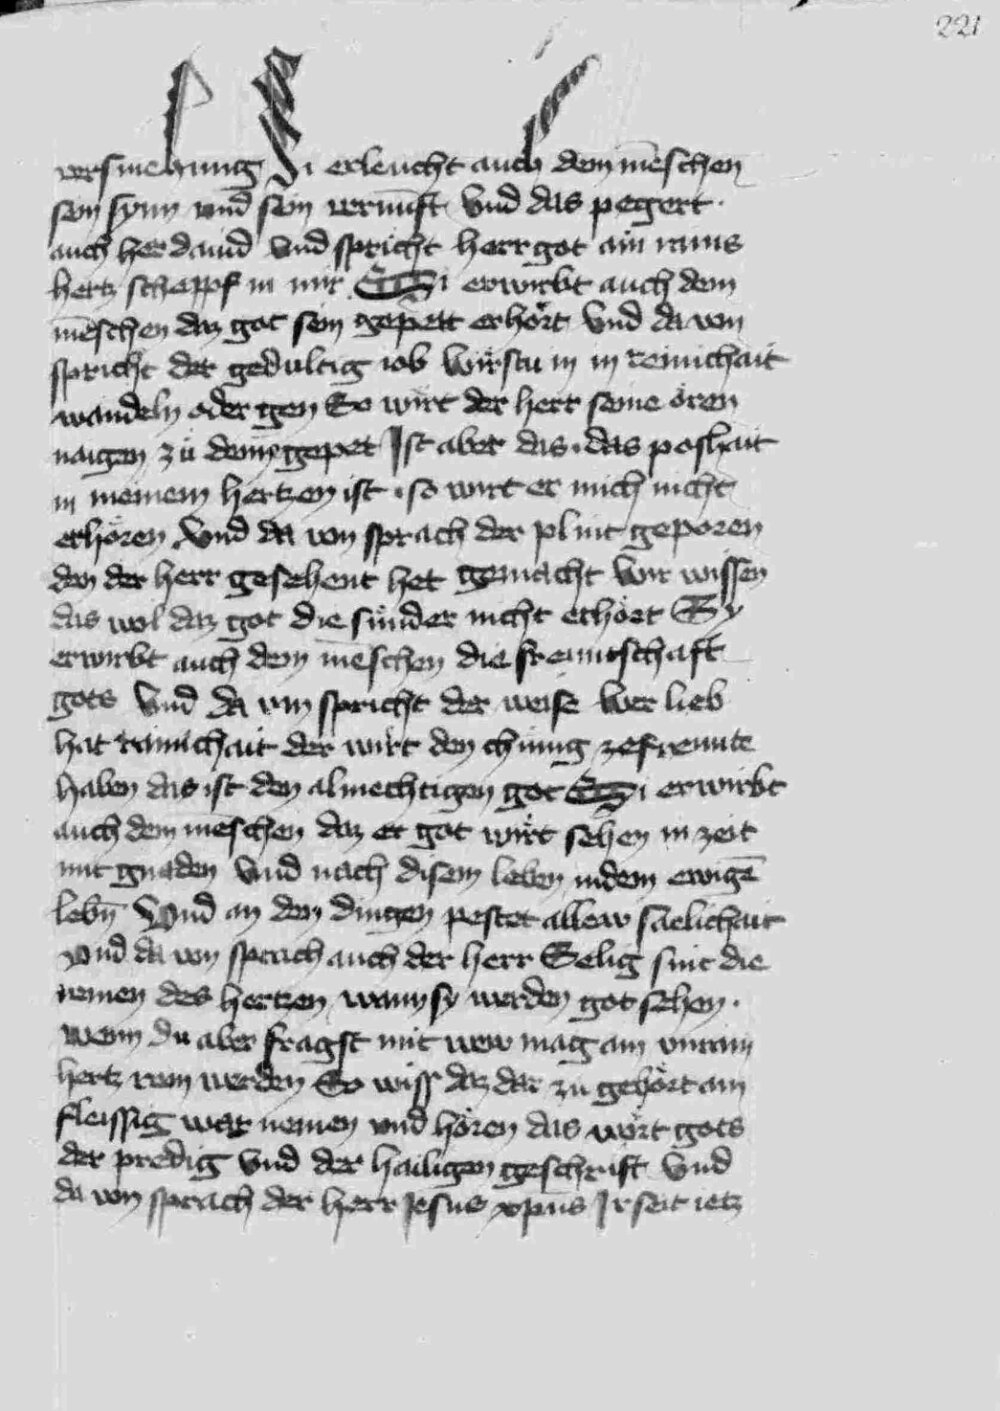 221
versmehung Si erleucht auch dem mēschen
sein synn vnd sein vernūft Vnd das pegert ·
auch her dauid Vnd spricht herr got ain rains
hertz scheppf in mir Si erwirbt auch dem
mēschen daz got sein gepett erhört Vnd da von
spricht der gedultig iob Wirstu in in reinichait
wandeln oder gen So wirt der herr seine ören
naigen zů deinem gepet Ist aber das · das poshait
in meinem hertzen ist · so wirt er mich nicht
erhören Vnd da von sprach der plint geporen
den der herr gesehent het gemacht Wir wissen
das wol daz got die sünder nicht erhört Sy
erwirbt auch dem mēschen die freuntschaft
gots Vnd da von spricht der weise Wer lieb
hat rainichait der wirt den chünig ze freunte
haben das ist den almechtigen got Si erwirbt
auch dem mēschen daz er got wirt sehen in zeit
mit gnaden Vnd nach disem leben in dem ewigē
lebn̄ Vnd an den dingen pestet allew sälichait
vnd da von sprach auch der herr Selig sint die
reinen des hertzen wann sy werden got sehen ·
wenn du aber fragst mit wew mag ain vnrain
hertz rein werden So wiss daz dar zů gehört ain
fleissig war nemen vnd hören das wort gots
der predig Vnd der hailigen geschrift Vnd
da von sprach der herr Jesus xpus Ir seit ietz